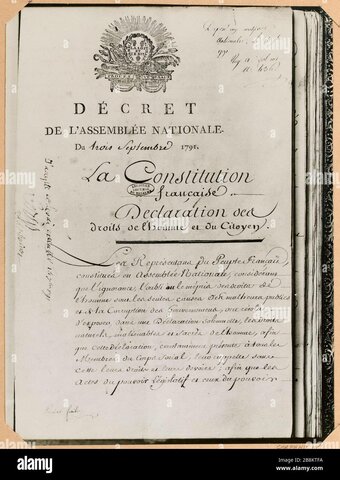 DÉCRET
DE L'ASSEMBLÉE NATIONALE.
Du trois Septembre 1791.
La Constitution
française.
Déclaration des
droits de l'homme et du Citoyen
Les Représentans du Peuple Français
constitués en Assemblée Nationale, considérant
que l'ignorance, l'oubli ou le mépris des droits de
l'homme sont les seules causes des malheurs publics
et de la Corruption des Gouvernemens, ont résolu
d'exposer dans une Déclaration Solemnelle, les droits
naturels, inaliénables et sacrés de l'homme, afin
que cette déclaration, constamment présente à tous les
Membres du Corps Social, leur rappelle sans
cesse leurs droits et leurs devoirs; afin que les
Actes du pouvoir législatif et ceux du pouvoir
alamy
Image ID: 2B8KTFA
www.alamy.com